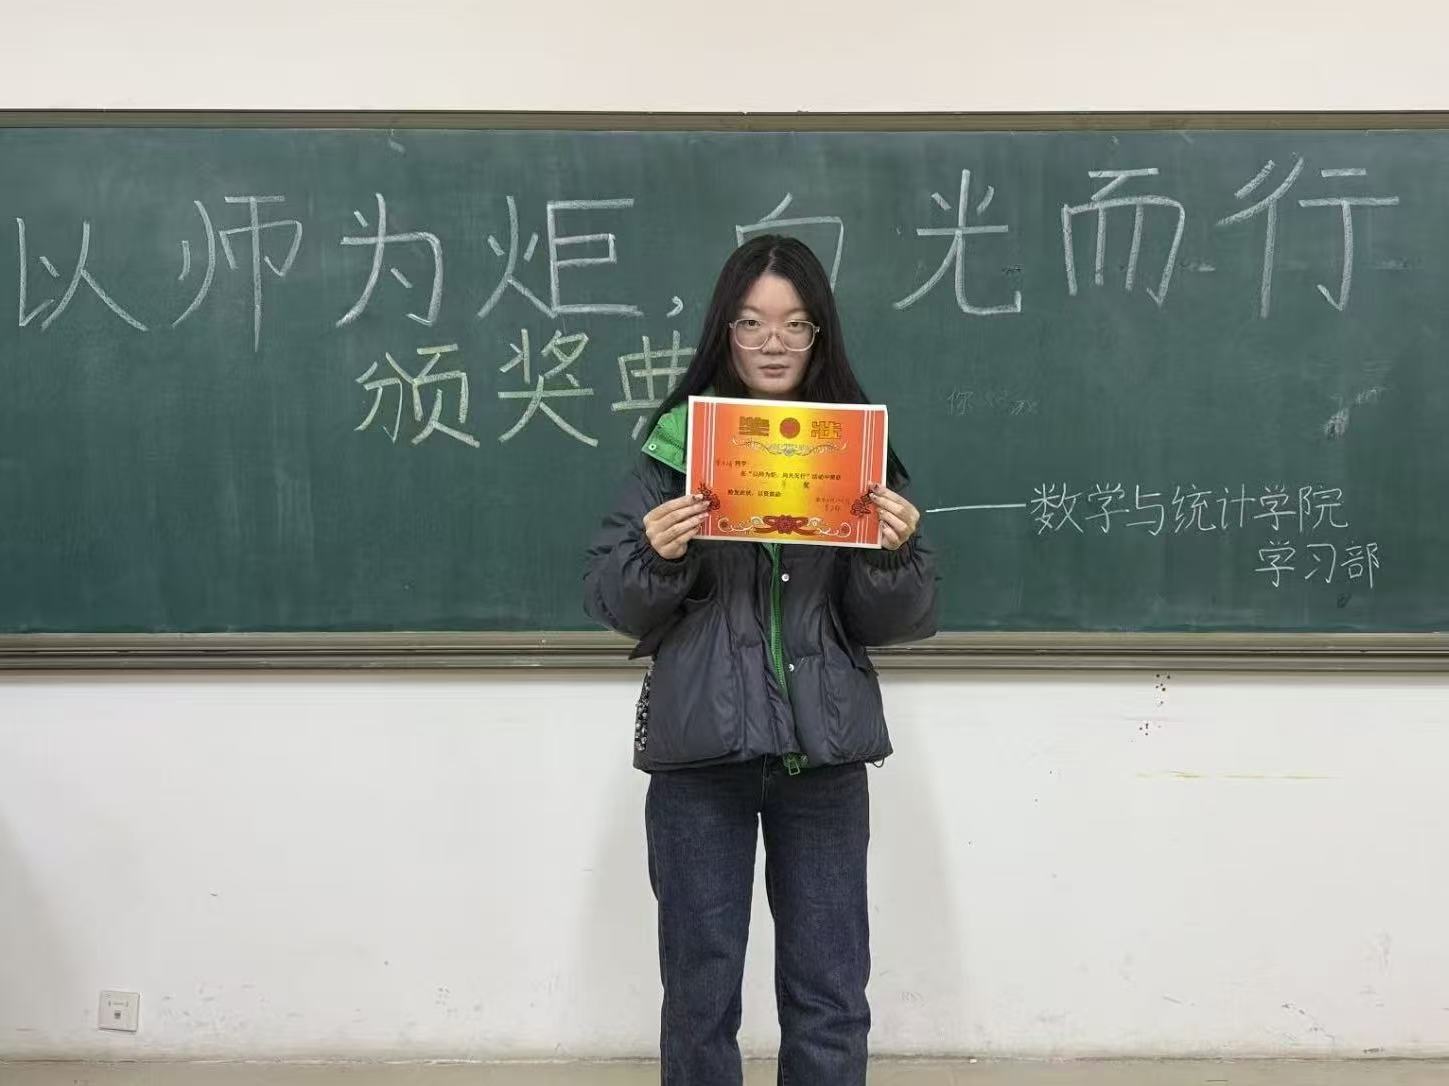 以师为炬,向光而行
颁奖典
——数学与统计学院
学习部
奖状
同学:
在“以师为炬,向光而行”活动中荣获
奖
特发此状,以资鼓励